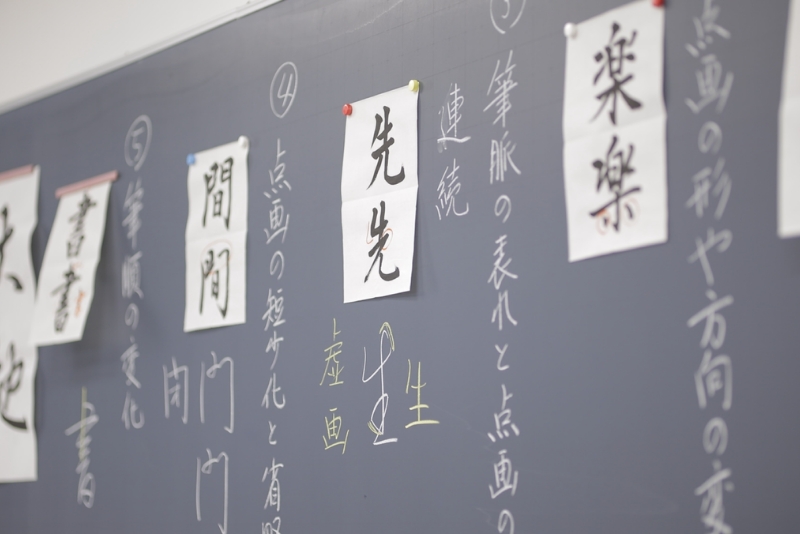 点画の形や方向の変
楽
楽
③筆脈の表れと点画の
連続
先
先
生
生
虚画
④点画の短少化と省
間
間
門
門
閉
⑤筆順の変化
書
書
書
大
池